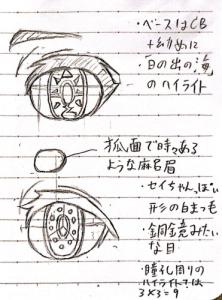 ・ベースはCB
+幼めに
・日の出の海
のハイライト
狐面で時々ある
ような麻呂眉
・セイちゃんっぽい
形の白まつも
な目
・瞳孔周りの
ハイライトでは
3×3=9